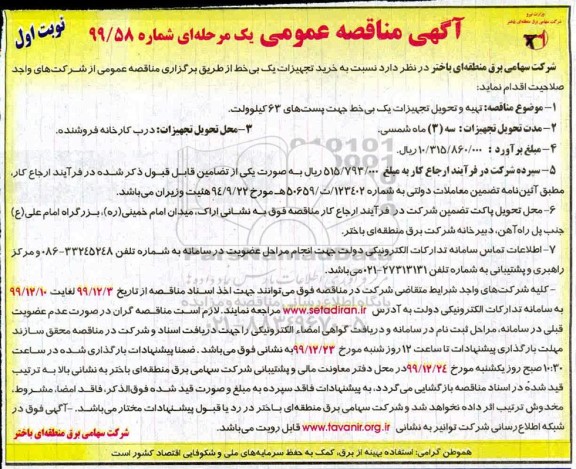 وزارت نیرو
شرکت سهامی برق منطقه‌ای باختر
نوبت اول
آگهی مناقصه عمومی یک مرحله‌ای شماره ۹۹/۵۸
شرکت سهامی برق منطقه‌ای باختر در نظر دارد نسبت به خرید تجهیزات یک بی‌خط از طریق برگزاری مناقصه عمومی از شرکت‌های واجد
صلاحیت اقدام نماید:
۱- موضوع مناقصه: تهیه و تحویل تجهیزات یک بی‌خط جهت پست‌های ۶۳ کیلوولت.
۲- مدت تحویل تجهیزات: سه (۳) ماه شمسی. ۳- محل تحویل تجهیزات: درب کارخانه فروشنده.
۴- مبلغ برآورد: ۱۰/۳۱۵/۸۶۰/۰۰۰ ریال.
۵- سپرده شرکت در فرآیند ارجاع کار به مبلغ ۵۱۵/۷۹۳/۰۰۰ ریال به صورت یکی از تضامین قابل قبول ذکر شده در فرآیند ارجاع کار،
مطابق آئین‌نامه تضمین معاملات دولتی به شماره ۱۲۳۴۰۲/ت/۵۰۶۵۹هـ مورخ ۹۴/۹/۲۲ هئیت وزیران می‌باشد.
۶- محل تحویل پاکت تضمین شرکت در فرآیند ارجاع کار مناقصه فوق به نشانی اراک، میدان امام خمینی(ره)، بزرگراه امام علی(ع)
جنب پل راه‌آهن، دبیرخانه شرکت برق منطقه‌ای باختر.
۷- اطلاعات تماس سامانه تدارکات الکترونیکی دولت جهت انجام مراحل عضویت در سامانه به شماره تلفن ۳۳۲۴۵۲۴۸-۰۸۶ و مرکز
راهبری و پشتیبانی به شماره تلفن ۲۷۳۱۳۱۳۱-۰۲۱ می‌باشد.
- کلیه شرکت‌های واجد شرایط متقاضی شرکت در مناقصه فوق می‌توانند جهت اخذ اسناد مناقصه از تاریخ ۹۹/۱۲/۳ لغایت ۹۹/۱۲/۱۰
به سامانه تدارکات الکترونیکی دولت به آدرس www.setadiran.ir مراجعه نمایند. لازم است مناقصه گران در صورت عدم عضویت
قبلی در سامانه، مراحل ثبت نام در سامانه و دریافت گواهی امضاء الکترونیکی را جهت دریافت اسناد و شرکت در مناقصه محقق سازند
مهلت بارگذاری پیشنهادات تا ساعت ۱۲ روز شنبه مورخ ۹۹/۱۲/۲۳ به نشانی فوق می‌باشد. ضمنا پیشنهادات بارگذاری شده در ساعت
۱۰:۳۰ صبح روز یکشنبه مورخ ۹۹/۱۲/۲۴ در محل دفتر معاونت مالی و پشتیبانی شرکت سهامی برق منطقه‌ای باختر به نشانی بالا به ترتیب
قید شده در اسناد مناقصه بازگشایی می‌گردد. به پیشنهادات فاقد سپرده به مبلغ و صورت قید شده فوق‌الذکر، فاقد امضا، مشروط،
مخدوش ترتیب اثر داده نخواهد شد و شرکت سهامی برق منطقه‌ای باختر در رد یا قبول پیشنهادات مختار می‌باشد. -آگهی فوق در
شبکه اطلاع رسانی شرکت توانیر به نشانی www.tavanir.org.ir قابل رویت می‌باشد.
شرکت سهامی برق منطقه‌ای باختر
هموطن گرامی: استفاده بهینه از برق، کمک به حفظ سرمایه‌های ملی و شکوفایی اقتصاد کشور است